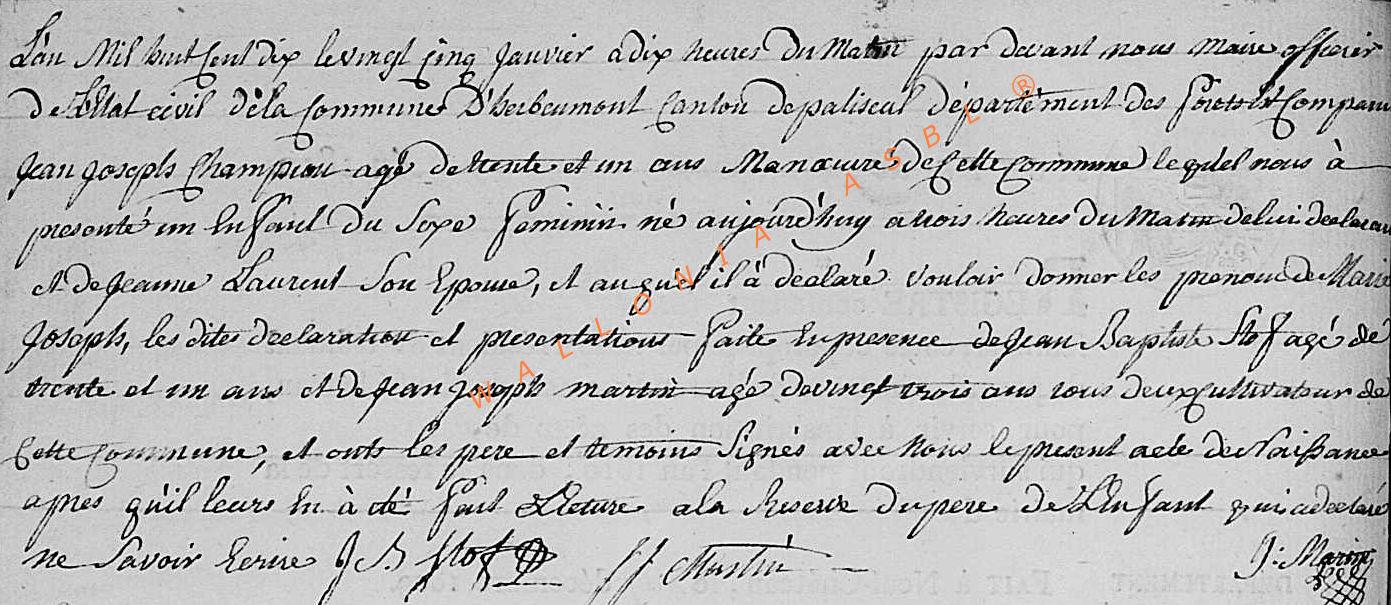 L'an Mil huit Cent dix le vingt Cinq Janvier a dix heures Du Matin par devant nous Maire officier
De L'Etat civil de la Commune D'herbeumont Canton de paliseul département des Forets est Comparu
Jean Joseph Champion agé de trente et un ans Manœuvre de Cette Commune lequel nous à
presenté un Enfant Du Sexe Feminin né aujourd'huy a trois heures Du Matin de lui declarant
et de Jeanne Laurent Son Epouse, et auquel il à declaré vouloir donner les prenom de Marie
Joseph, les dites declaration et presentations Faite En presence de Jean Baptiste Stof agé de
trente et un ans et de Jean Joseph Martin agé de vingt trois ans tous deux Cultivateur de
Cette Commune, et onts les pere et temoins Signés avec Nous le present acte de Naissance
apres qu'il leurs En à été Fait Lecture a la Reserve Du pere de L'Enfant qui a declaré
ne Savoir Ecrire J B Stof JJ Martin J: Marin
WALLONIA ASBL ®